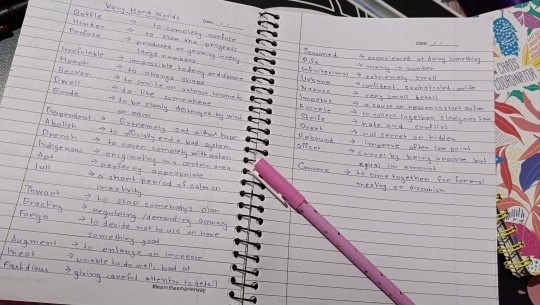 Very Hard Words
Date
Baffle → to completely confuse
Hinder → to slow the progress
Profuse → produced or growing in very
large numbers
Irrefutable → impossible to deny or disprove
Morph → to change shape
Beckon → to invite or attract someone
Dwell → to live somewhere
Erode → to be slowly destroyed by wind
or rain
Despondent → Extremely sad without hope
Abolish → to officially end a bad system
Drench → to cover completely with water
Indigenous → originating in a certain area
Apt → perfectly appropriate
lull → a short period of calm or
inactivity
Thwart → to stop somebody's plan
Exacting → requiring/demanding accuracy
Forgo → to decide not to use or have
something good
Augment → to enlarge or increase
Inept → unable to do well, bad at
Fastidious → giving careful attention to detail
Date
Seasoned → experienced at doing something
Rife → many in number
Infinitesimal → extremely small
Urbane → confident, sophisticated, polite
Nuance → very small detail
Impetus → a cause or reason to start action
Accrete → to collect together slowly over time
Strife → hate and conflict
Overt → not secret or hidden
Rebound → improve after low point
Offset → cancel by being opposite but
equal in amount
Convene → to come together for formal
meeting or discussion